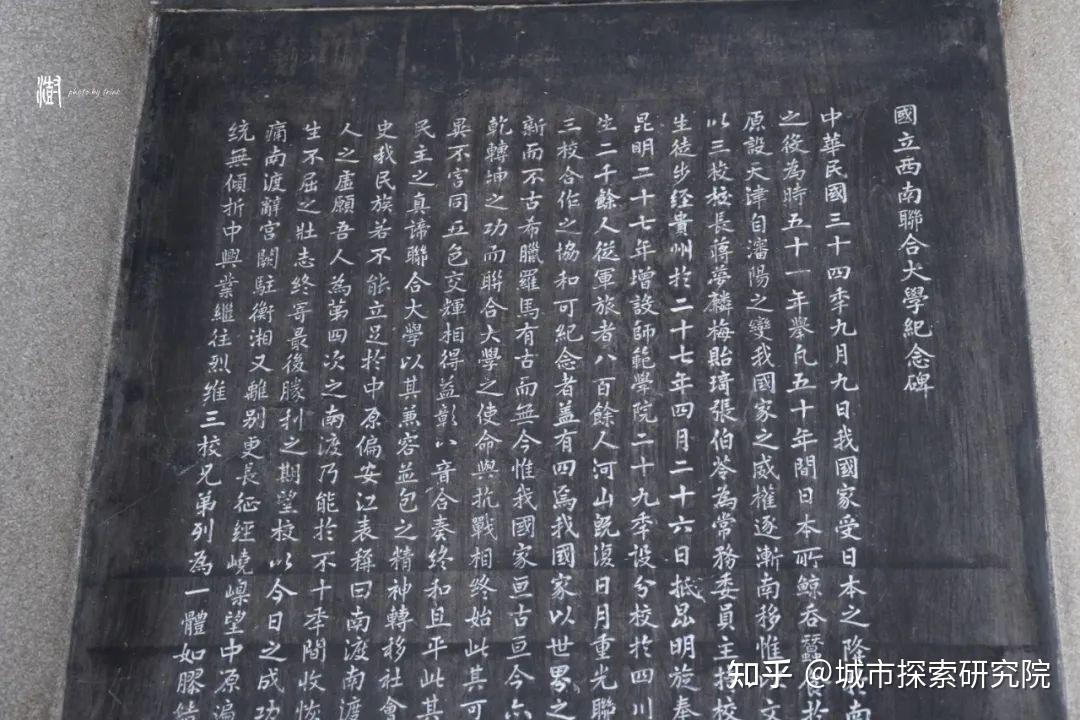 國立西南聯合大學紀念碑
中華民國三十四秊九月九日我國家受日本之降南
之後為時五十一年舉凡五十年間日本所鯨吞蠶於
原設天津自瀋陽之變我國家之威權逐漸南移惟文
以三校校長蔣夢麟梅貽琦張伯苓為常務委員主持校
生徒步經貴州於二十七年四月二十六日抵昆明旋奉
昆明二十七年增設師範學院二十九秊設分校於四川
生二千餘人從軍旅者八百餘人河山既復日月重光聯
三校合作之協和可紀念者蓋有四焉我國家以世界之
新而不古希臘羅馬有古而無今惟我國家亘古亘今亦
乾轉坤之功而聯合大學之使命與抗戰相終始此其可
異不害同五色交輝相得益彰八音合奏終和且平此其
民主之真諦聯合大學以其兼容並包之精神轉移社會
史我民族若不能立足於中原偏安江表稱曰南渡南渡
人之虛願吾人為第四次之南渡乃能於不十秊間收恢
生不屈之壯志終寄最後勝利之期望校以今日之成功
痛南渡辭宮闕駐衡湘又離別更長征經嶢嵲望中原遍
統無傾折中興業繼往烈維三校兄弟列為一體如膠結
澍
photo by
知乎 @城市探索研究院